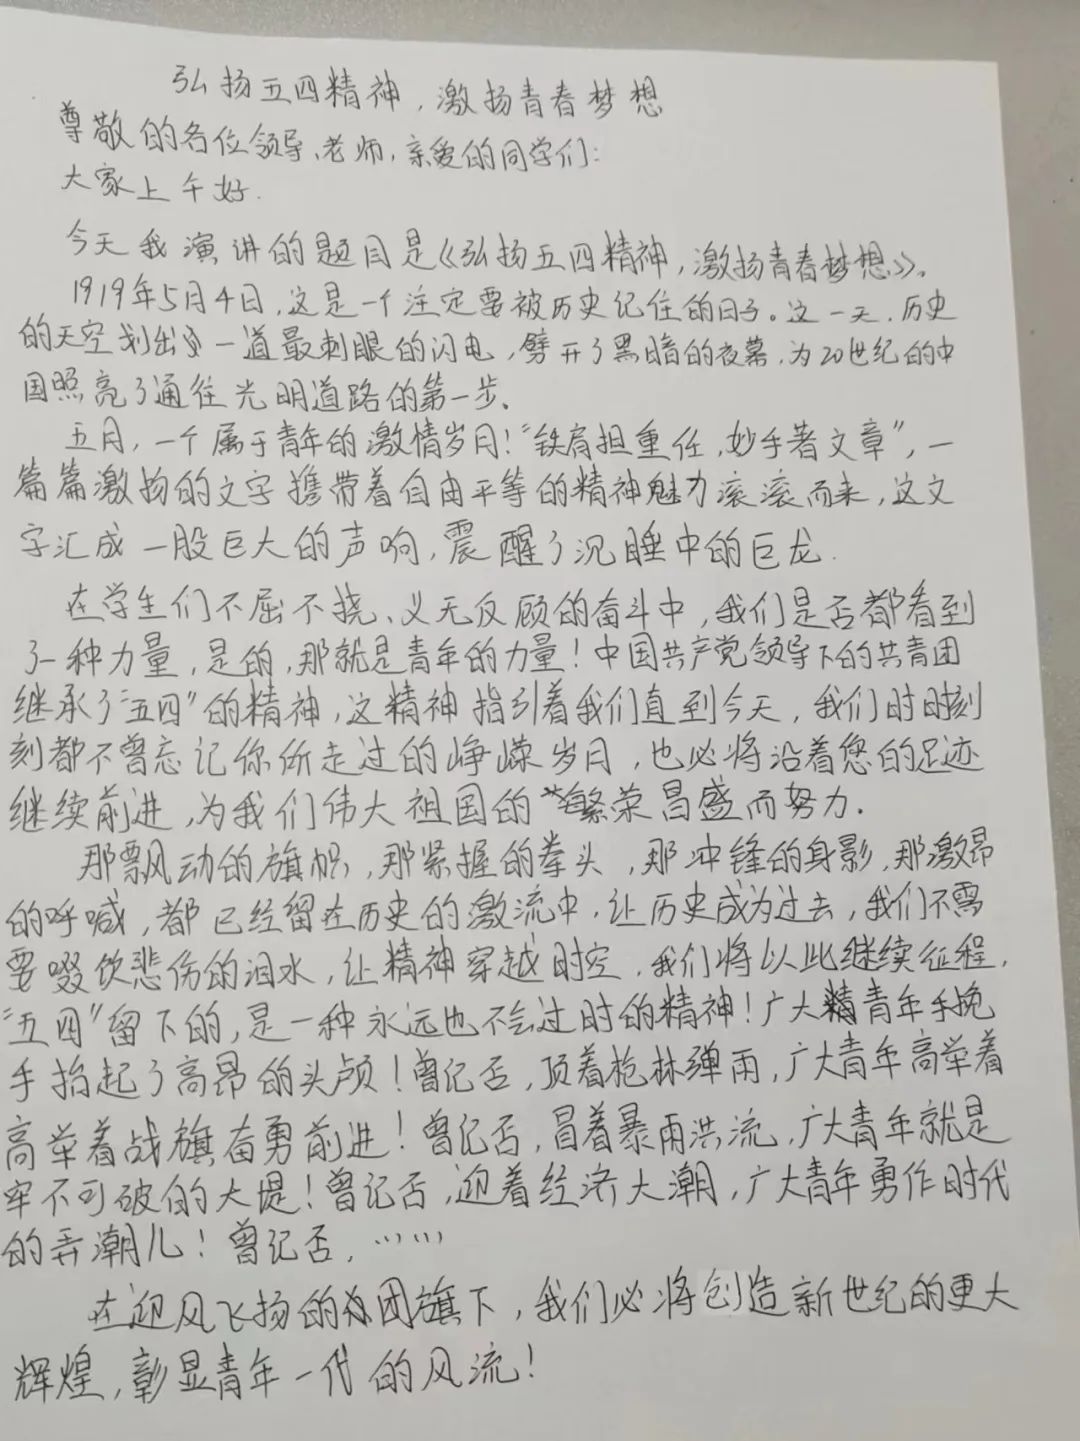 弘扬五四精神，激扬青春梦想
尊敬的各位领导、老师，亲爱的同学们：
大家上午好．
今天我演讲的题目是《弘扬五四精神，激扬青春梦想》。
1919年5月4日，这是一个注定要被历史记住的日子。这一天，历史
的天空划出一道最刺眼的闪电，劈开了黑暗的夜幕，为20世纪的中
国照亮了通往光明道路的第一步。
五月，一个属于青年的激情岁月！“铁肩担重任，妙手著文章”，一
篇篇激扬的文字携带着自由平等的精神魅力滚滚而来，这文
字汇成一股巨大的声响，震醒了沉睡中的巨龙．
在学生们不屈不挠、义无反顾的奋斗中，我们是否都看到
了一种力量，是的，那就是青年的力量！中国共产党领导下的共青团
继承了“五四”的精神，这精神指引着我们直到今天，我们时时刻
刻都不曾忘记你所走过的峥嵘岁月，也必将沿着您的足迹
继续前进，为我们伟大祖国的繁荣昌盛而努力．
那飘动的旗帜，那紧握的拳头，那冲锋的身影，那激昂
的呼喊，都已经留在历史的激流中，让历史成为过去，我们不需
要啜饮悲伤的泪水，让精神穿越时空，我们将以此继续征程，
“五四”留下的，是一种永远也不会过时的精神！广大青年手挽
手抬起了高昂的头颅！曾记否，顶着枪林弹雨，广大青年高举着
高举着战旗奋勇前进！曾记否，冒着暴雨洪流，广大青年就是
牢不可破的大堤！曾记否，迎着经济大潮，广大青年勇作时代
的弄潮儿！曾记否，……
在迎风飞扬的团旗下，我们必将创造新世纪的更大
辉煌，彰显青年一代的风流！